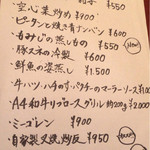 ¥550
・空心菜炒め ¥900
・ピータンと焼き青ナンバン ¥600
・もみじの蒸しもの ¥550
・豚マメの冷製 ¥600
・鮮魚の姿蒸し ¥1,500
・牛ハツ、ハチの子、バクテーのマーラーソース ¥100
・A4和牛リブロースグリル 約200g ¥2,000
・ミーゴレン ¥900
・自家製叉焼炒飯 ¥950